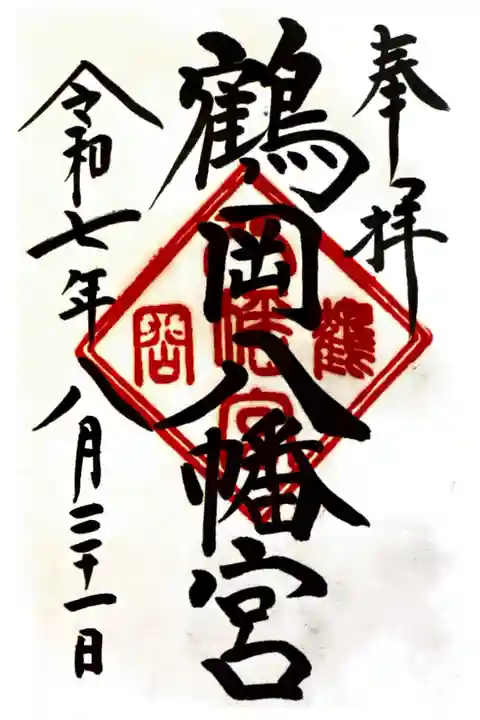 奉拝
鶴岡八幡宮
令和七年八月三十一日
鶴
岡
八幡宮